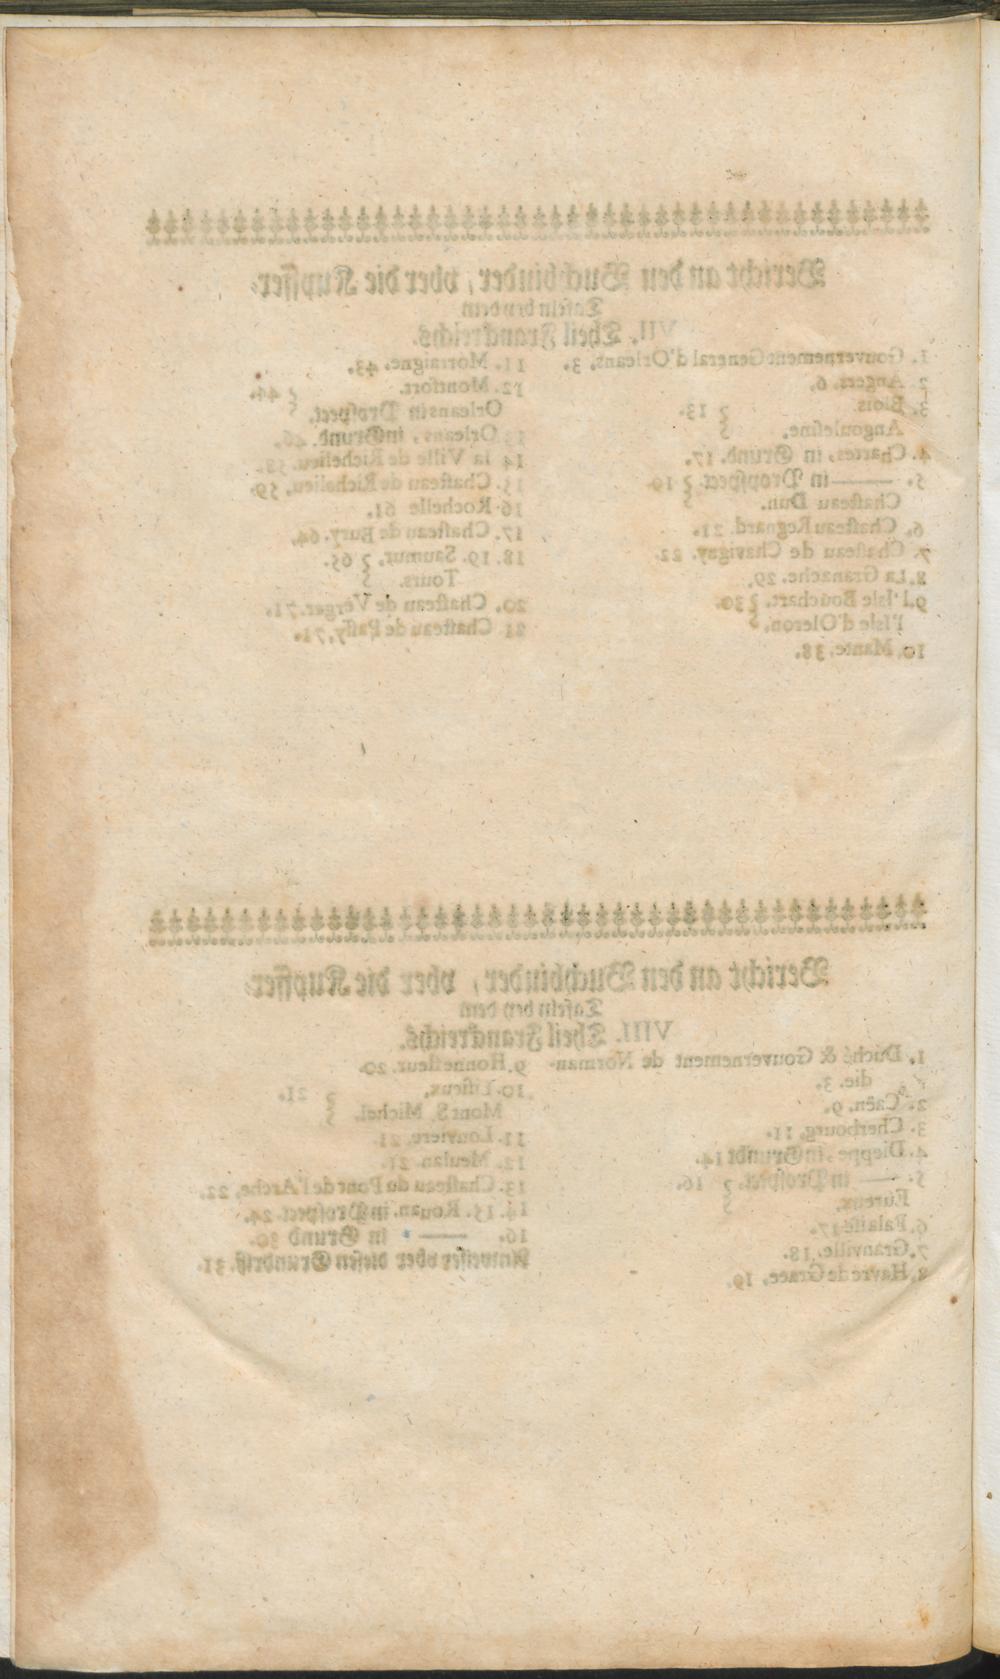 Bericht an den Buchbinder, vber die Kupffer-
Tafeln bey dem
VII. Theil Franckreichs.
1. Gouvernement General d'Orleans, 3.
2. Angers. 6.
3. Blois. } 13.
Angoulesme. }
4. Chartes, in Grund. 17.
5. —— in Propspect. } 19
Chasteau Dun. }
6. Chasteau Regnard. 21.
7. Chasteau de Chavigny. 22.
8. La Granache. 29.
9. l'Isle Bouchart. } 30.
l'Isle d'Oleron. }
10. Mante. 38.
11. Morraigne. 43.
12. Montfort. } 44.
Orleans in Prospect. }
13 Orleans, in Grund. 46.
14 la Ville de Richelieu. 58.
15. Chasteau de Richelieu. 59.
16. Rochelle 61.
17. Chasteau de Bury. 64.
18. 19. Saumur. } 65.
Tours. }
20. Chasteau de Verger. 71.
21 Chasteau de Passy. 71.
Bericht an den Buchbinder, vber die Kupffer-
Tafeln bey dem
VIII. Theil Franckreichs.
1. Duché & Gouvernement de Norman-
die. 3.
2. Caën. 9.
3. Cherbourg. 11.
4. Dieppe, in Grundt 14.
5. —— in Prospect. } 16.
Eureux. }
6. Falaise 17.
7. Granville. 18.
8. Havre de Grace. 19.
9. Honnefleur. 20.
10. Lisieux. } 21.
Mont S. Michel. }
11. Louviere. 21.
12. Meulan. 21.
13. Chasteau du Pont de l'Arche. 22.
14. 15. Rouan. in Prospect. 24.
16. —— in Grund 30.
Antweiser vber diesen Grundriß. 31.